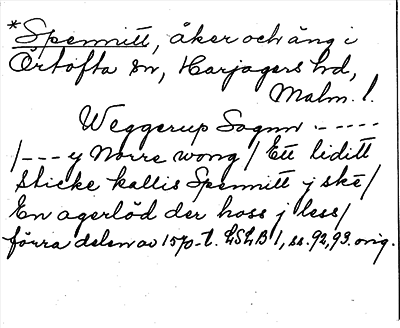 *Spennitt, åker och äng i
Örtofta sn, Harjagers hd,
Malm. l.
Weggerup Sognn . - - - - -
/ - - - y Norre wong / Ett liditt
sticke kallis Spennitt j ské /
En agerlöd der hoss j less /
förra delen av 1570-t. LSLB 1, ss. 92, 93. orig.